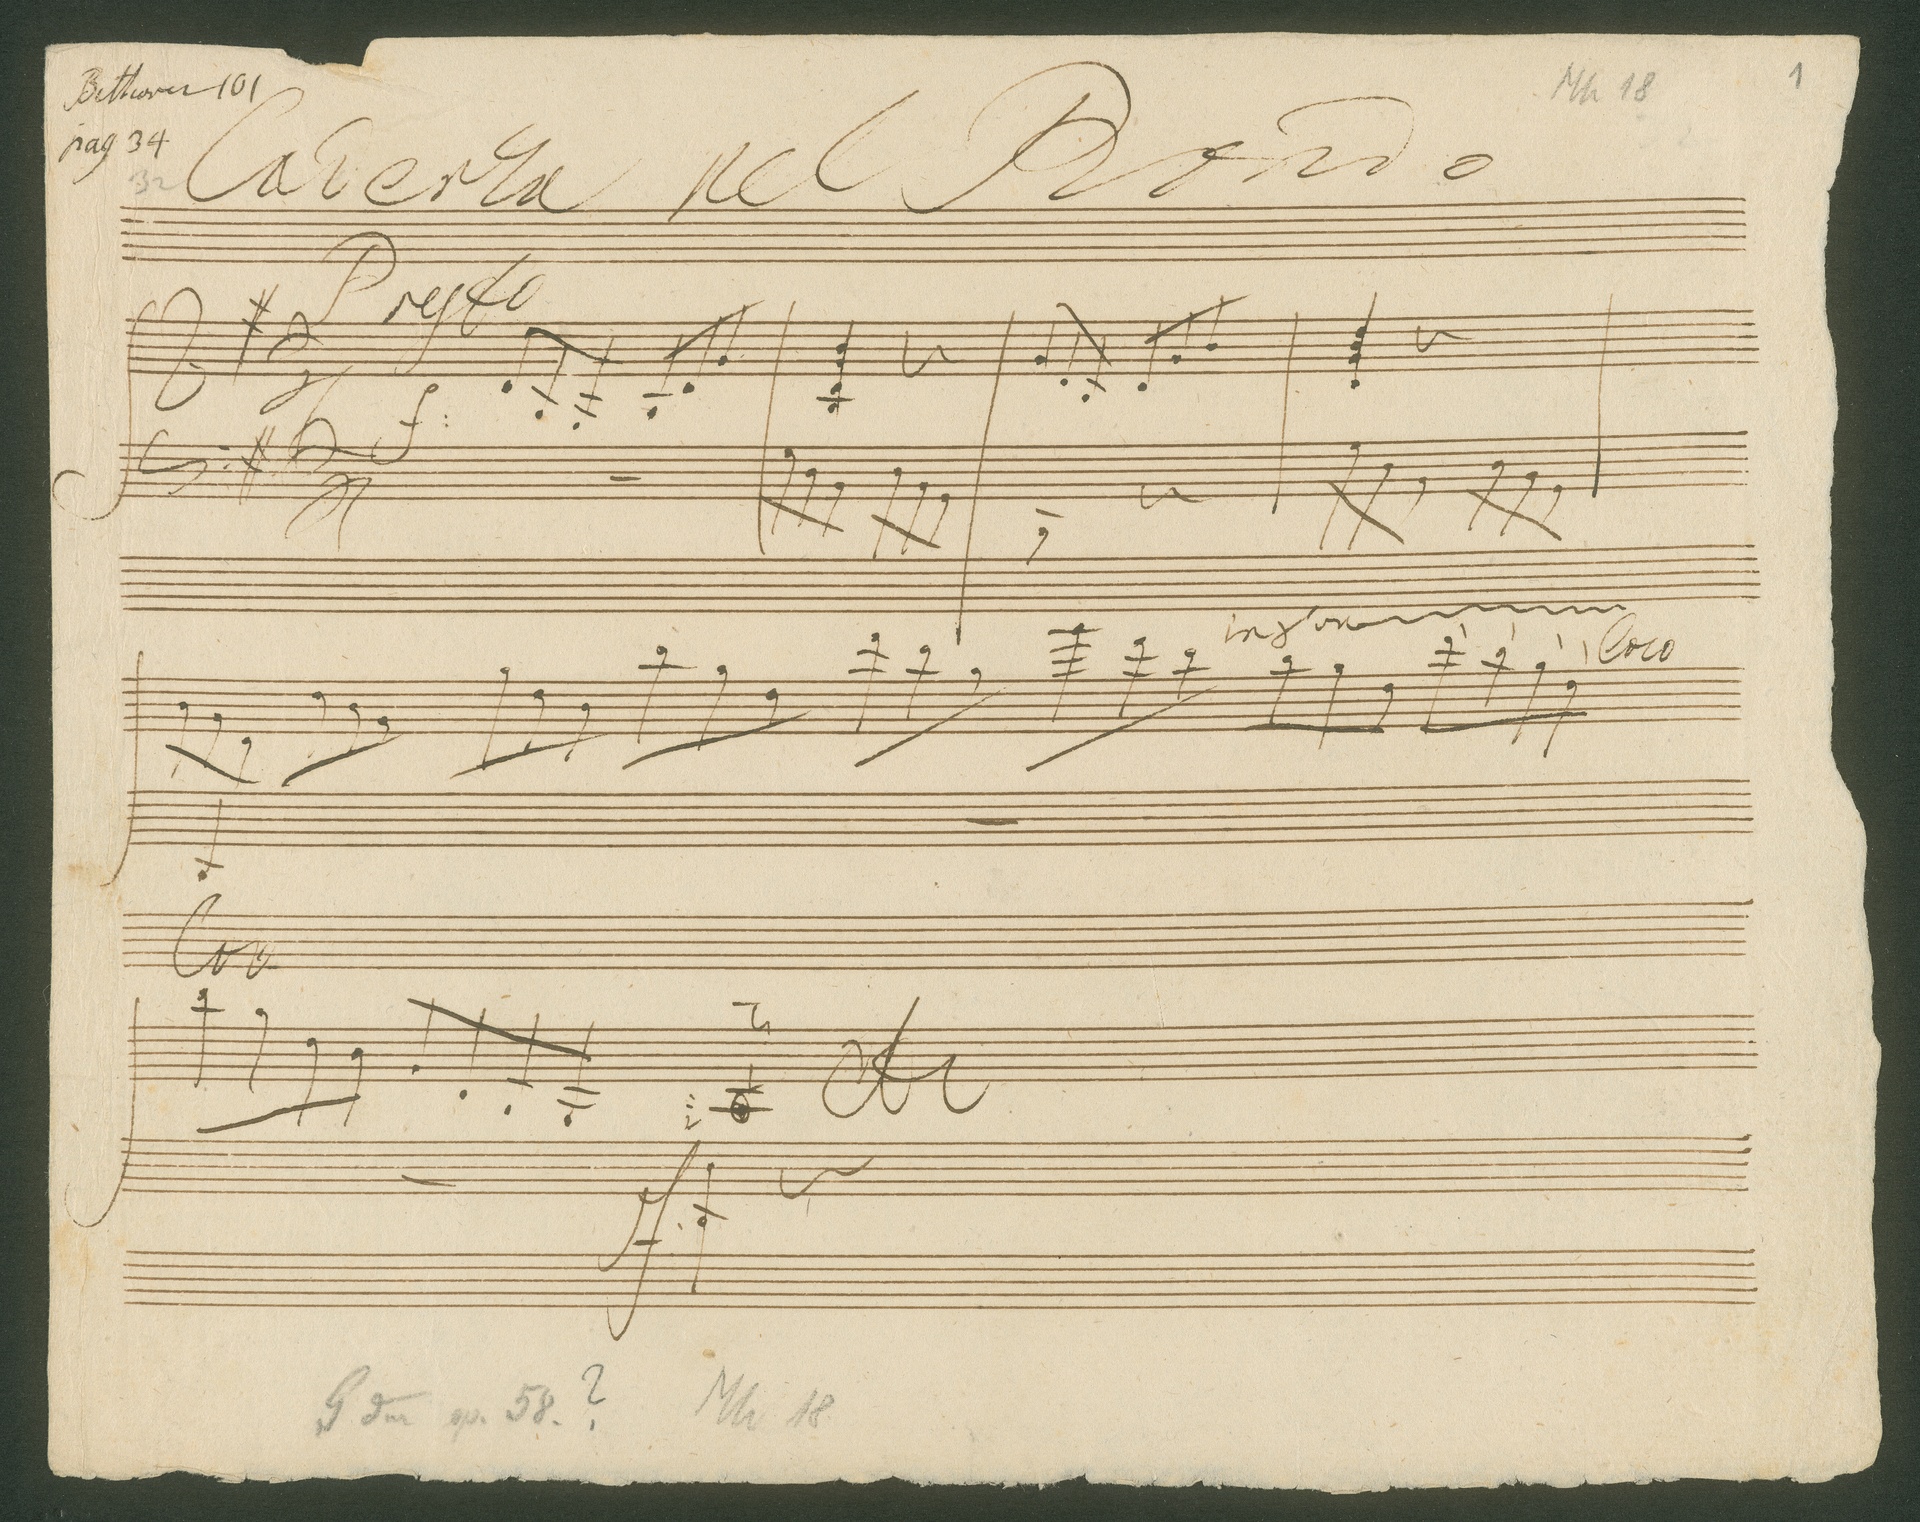 Bethoven 101
pag 34
32
Mh 18
1
Cadenza nel Rondo
Presto
f:
loco
Coro
ff.
etc
G dur op. 58. ?
Mh 18